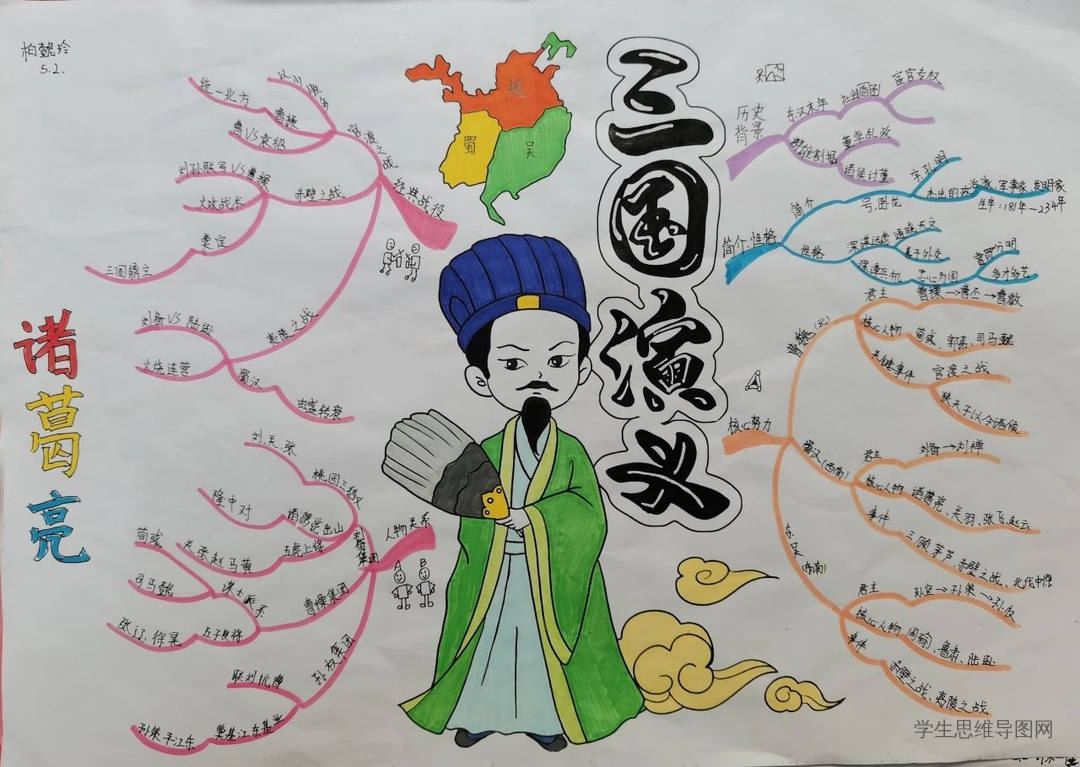 5.2.
诸葛亮
三国演义
魏
蜀
吴
经典战役
官渡之战
曹操
统一北方
曹VS袁绍
赤壁之战
刘孙联军VS曹操
火攻战术
奠定
三国鼎立
夷陵之战
刘备VS陆逊
火烧连营
蜀汉
由盛转衰
人物关系
刘备集团
桃园三结义
刘关张
诸葛亮出山
隆中对
五虎上将
关张赵马黄
曹操集团
谋士派系
荀彧
司马懿
五子良将
张辽、徐晃
孙权集团
联刘抗曹
奠基江东基业
孙策平江东
历史背景
东汉末年
宦官专权
群雄割据
董卓乱政
诸侯讨董
简介、性格
简介
字:孔明
号:卧龙
杰出的政治家 军事家 发明家
生卒:181年—234年
性格
忠心为国
赏罚分明
多才多艺
核心势力
曹魏(北)
君主
曹操→曹丕→曹叡
核心人物
荀彧、郭嘉、司马懿
关键事件
官渡之战
挟天子以令诸侯
蜀汉(西南)
君主
刘备→刘禅
核心人物
诸葛亮、关羽、张飞、赵云
事件
三顾茅庐、赤壁之战、北伐中原
东吴(东南)
君主
孙坚→孙策→孙权
核心人物
周瑜、鲁肃、陆逊
事件
赤壁之战、夷陵之战
学生思维导图网